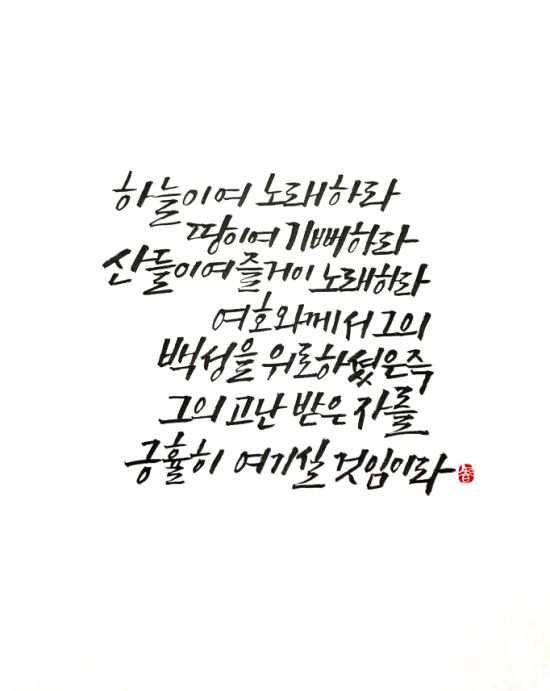 하늘이여 노래하라
땅이여 기뻐하라
산들이여 즐거이 노래하라
여호와께서 그의
백성을 위로하셨은즉
그의 고난 받은 자를
긍휼히 여기실 것임이라